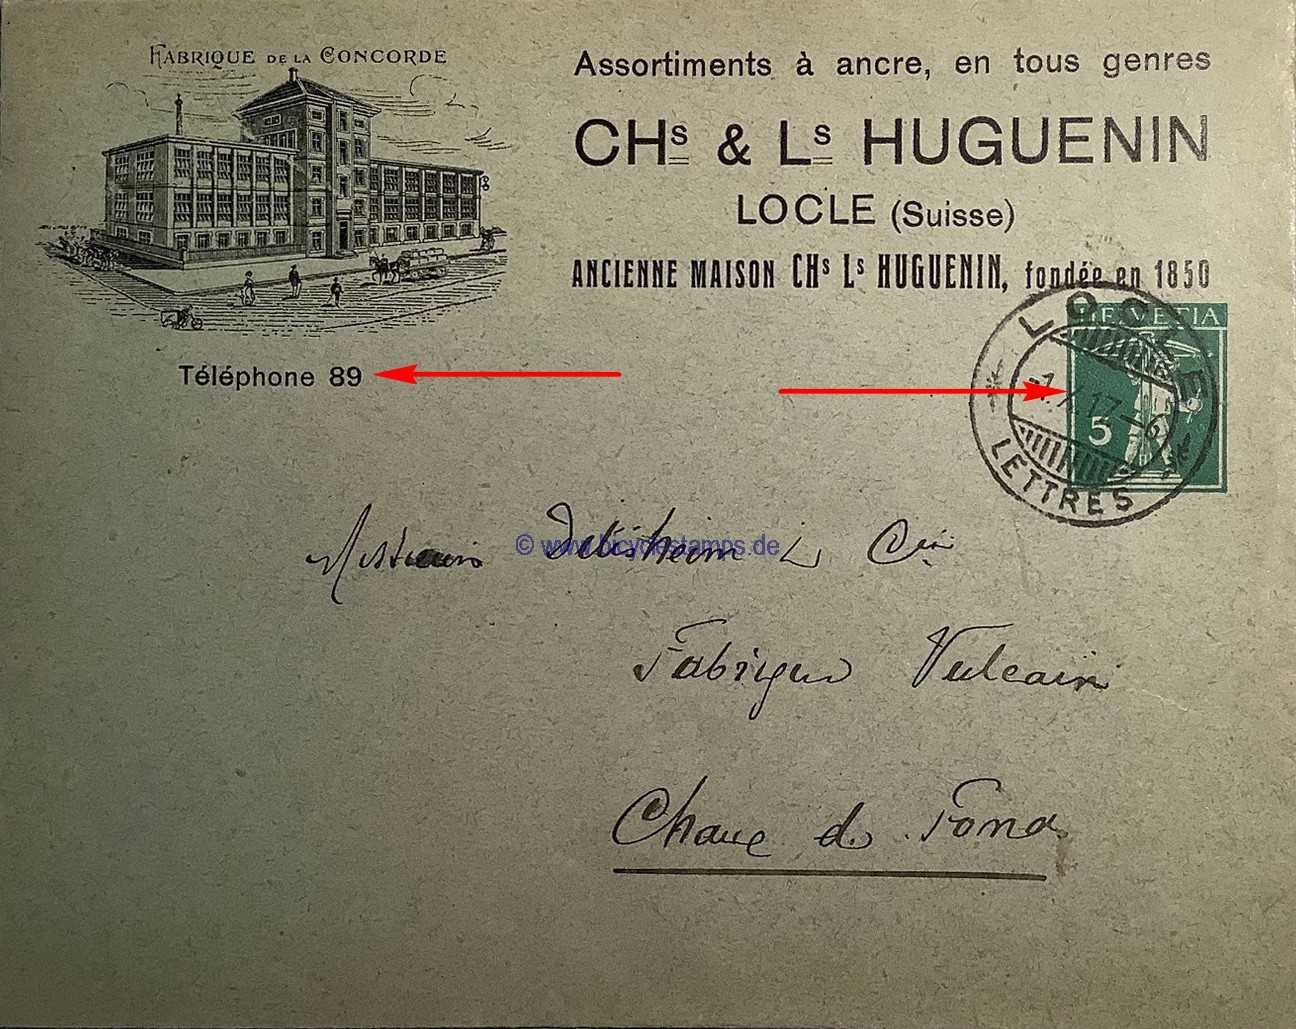 FABRIQUE DE LA CONCORDE
Assortiments à ancre, en tous genres
CHs & Ls HUGUENIN
LOCLE (Suisse)
ANCIENNE MAISON CHs Ls HUGUENIN, fondée en 1850
Téléphone 89
HELVETIA
5
LOCLE
17-6
LETTRES
© www.bicyclestamps.de
Messieurs Ditisheim & Cie
Fabrique Vulcain
Chaux d. Fonds